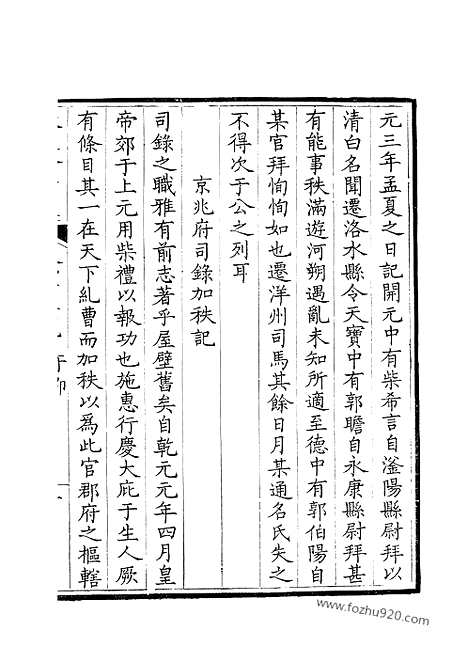 元三年孟夏之日記開元中有柴希言自滏陽縣尉拜以
清白名聞遷洛水縣令天寶中有郭瞻自永康縣尉拜甚
有能事秩滿遊河朔遇亂未知所適至德中有郭伯陽自
某官拜恂恂如也遷洋州司馬其餘日月某通名氏失之
不得次于公之列耳
京兆府司錄加秩記
司錄之職雅有前志著乎屋壁舊矣自乾元元年四月皇
帝郊于上元用柴禮以報功也施惠行慶大庇于生人厥
有條目其一在天下糺曹而加秩以爲此官郡府之樞轄
www.fozhu920.com